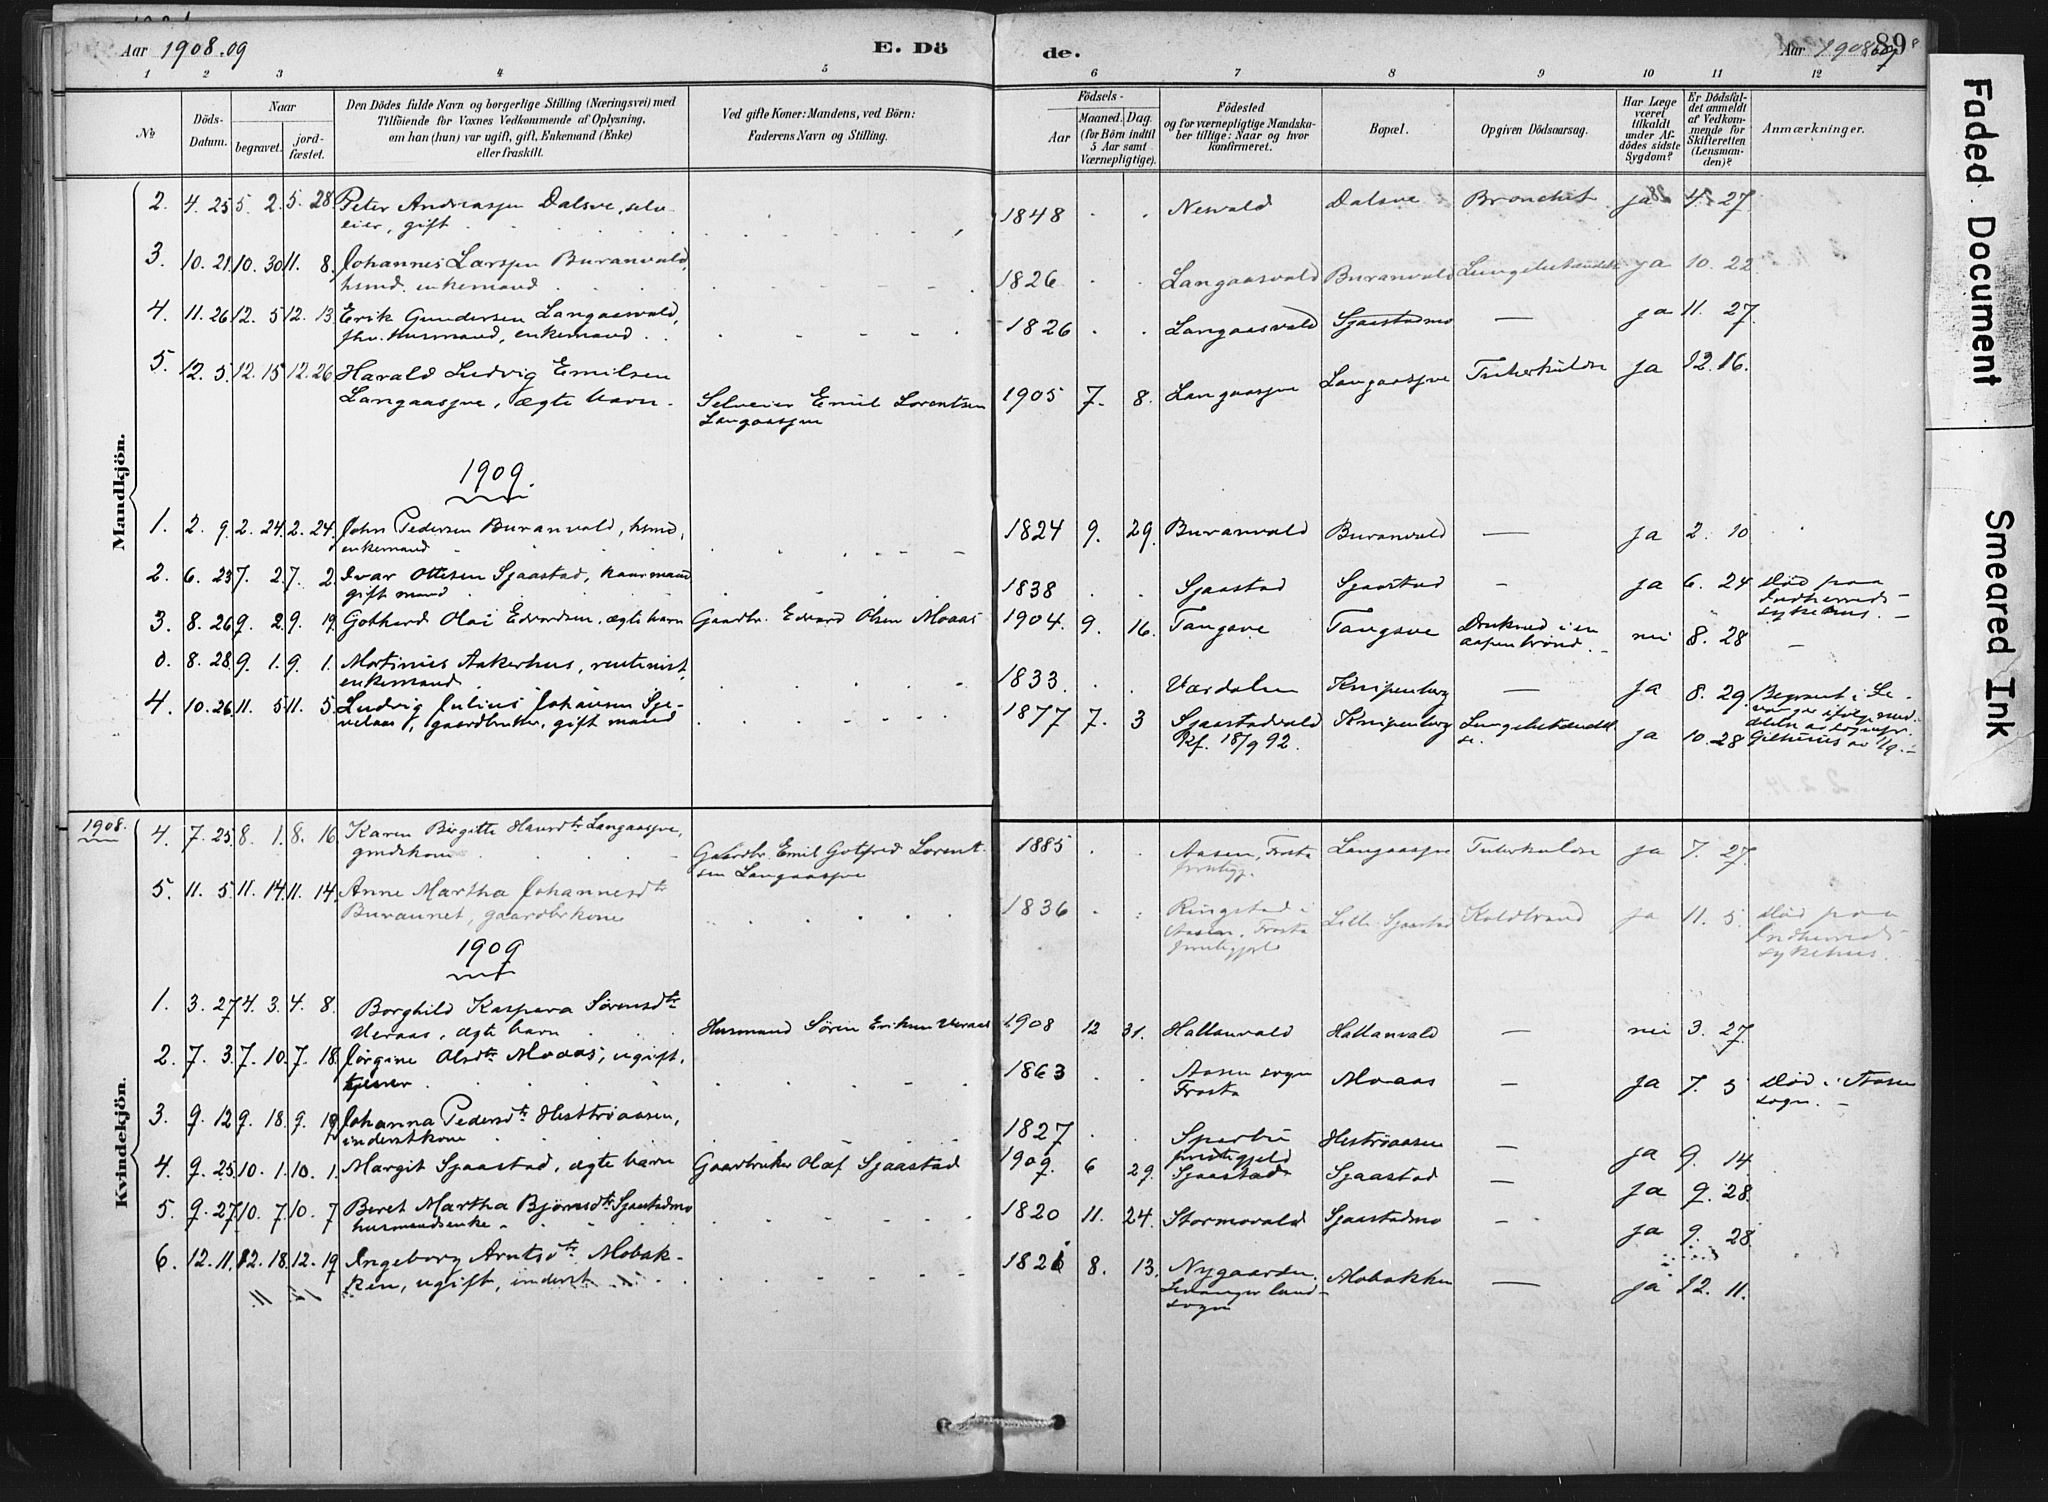 Aar 1908.09
E. Dö
de.
Aar 1908.09
89
1 2 3 4 5 6 7 8 9 10 11 12
No
Döds-
Datum.
Naar
begravet.
jord-
fæstet.
Den Dödes fulde Navn og borgerlige Stilling (Næringsvei) med
Tilföiende for Voxnes Vedkommende af Oplysning,
om han (hun) var ugift, gift, Enkemand (Enke)
eller fraskilt.
Ved gifte Koner: Mandens, ved Börn:
Faderens Navn og Stilling.
Födsels-
Aar
Maaned.
Dag.
(for Börn indtil
5 Aar samt
Værnepligtige).
Födested
og for værnepligtige Mandska-
ber tillige: Naar og hvor
konfirmeret.
Bopæl.
Opgiven Dödsaarsag.
Har Læge
været
tilkaldt
under Af-
dödes sidste
Sygdom?
Er Dödsfal-
det anmeldt
af Vedkom-
mende for
Skifteretten
(Lensman-
den)?
Anmærkninger.
Mandkjön.
2. 4. 25 5. 2. 5. 28. Peter Andreassen Dalsve, selv-
eier, gift
1848 Nesvald Dalsve Bronchit ja 4. 27
3. 10. 21. 10. 30 11. 8. Johannes Larssen Buranvald,
hsmd. enkemand
1826 Langaasvald Buranvald Lungebetændelse ja 10. 22
4. 11. 26 12. 5 12. 13 Erik Gundersen Langaasvald,
fhv. husmand, enkemand
1826 Langaasvald Sjaastadmo — ja 11. 27.
5. 12. 5. 12. 15 12. 26 Harald Ludvig Emilsen
Langaasjve, ægte barn
Selveier Emil Lorentsen
Langaasjve
1905 7. 8. Langaasjve Langaasjve Tuberkulose ja 12. 16.
1909.
1. 2. 9. 2. 24. 2. 24. John Pedersen Buranvald, hsmd,
enkemand
1824 9. 29. Buranvald Buranvald — ja 2. 10
2. 6. 23 7. 2. 7. 2. Ivar Ottesen Sjaastad, kaarmand
gift mand
1838 Sjaastad Sjaastad - ja 6. 24 Död paa
Indherreds
sykehus. -
3. 8. 26 9. 2. 9. 19. Gothard Olai Edvardsen, ægte barn Gaardbr. Edvard Olsen Moaas
1904. 9. 16. Tangsve Tangsve Drukned i en
aapen brönd. nei 8. 28 —
0. 8. 28. 9. 1. 9. 1. Martinus Aakerhus, rentenist,
enkemand
1833. Værdalen Knipenberg — ja 8. 29. Begravet i Le-
vanger ifölge med-
delen av sognepr.
4. 10. 26. 11. 5 11. 5 Ludvig Julius Johansen Sje-
velaas, gaardbruker, gift mand
1877 7. 3 Sjaastadvald
Kf. 18/9 92. Knipenberg Lungebetændel-
se. ja 10. 28
Kvindekjön.
1908.
4. 7. 25 8. 1. 8. 16 Karen Birgitte Hansdtr Langaasjve,
gmdskone
Gaardbr. Emil Gotfred Lorent-
sen Langaasjve
1885 Aasen, Frosta
prestegj. Langaasjve Tuberkulose ja 7. 27
5. 11. 5. 11. 14. 11. 14. Anne Martha Johannesdtr
Buraunet, gaardbrkone
1836 Ringstad i
Aasen, Frosta
prestegjeld Lille-Sjaastad Koldbrand ja 11. 5 Död paa
Indherreds-
sykehus.
1909
1. 3. 27 4. 3. 4. 8. Borghild Kaspara Sörensdtr
Veraas, ægte barn
Husmand Sören Eriksen Veraas
1908 12 31. Hallanvald Hallanvald — nei 3. 27.
2. 7. 3. 7. 10. 7. 18. Jörgine Olsdtr Moaas, ugift,
tjener
1863 Aasen sogn
Frosta Moaas - ja 7. 5 Död i Aasen
sogn. -
3. 9. 12 9. 18. 9. 19 Johanna Pedersdtr Heströaasen,
inderstkone
1827 Sparbu
prestegjeld Heströaasen - ja 9. 14
4. 9. 25. 10. 1. 10. 1. Margit Sjaastad, ægte barn Gaardbruker Olaf Sjaastad
1909. 6 29. Sjaastad Sjaastad - ja 9. 28.
5. 9. 27. 10. 7. 10. 7 Beret Martha Björnsdtr Sjaastadmo
husmandsenke.
1820 11. 24. Stormovald Sjaastadmo - ja 9. 28
6. 12. 11. 12. 18. 12. 19 Ingeborg Arntsdtr Mobak-
ken, ugift, inderst
1826 8. 13. Nygaarden.
Levanger land-
sogn Mobakken — ja 12. 11.
Faded Document
Smeared Ink